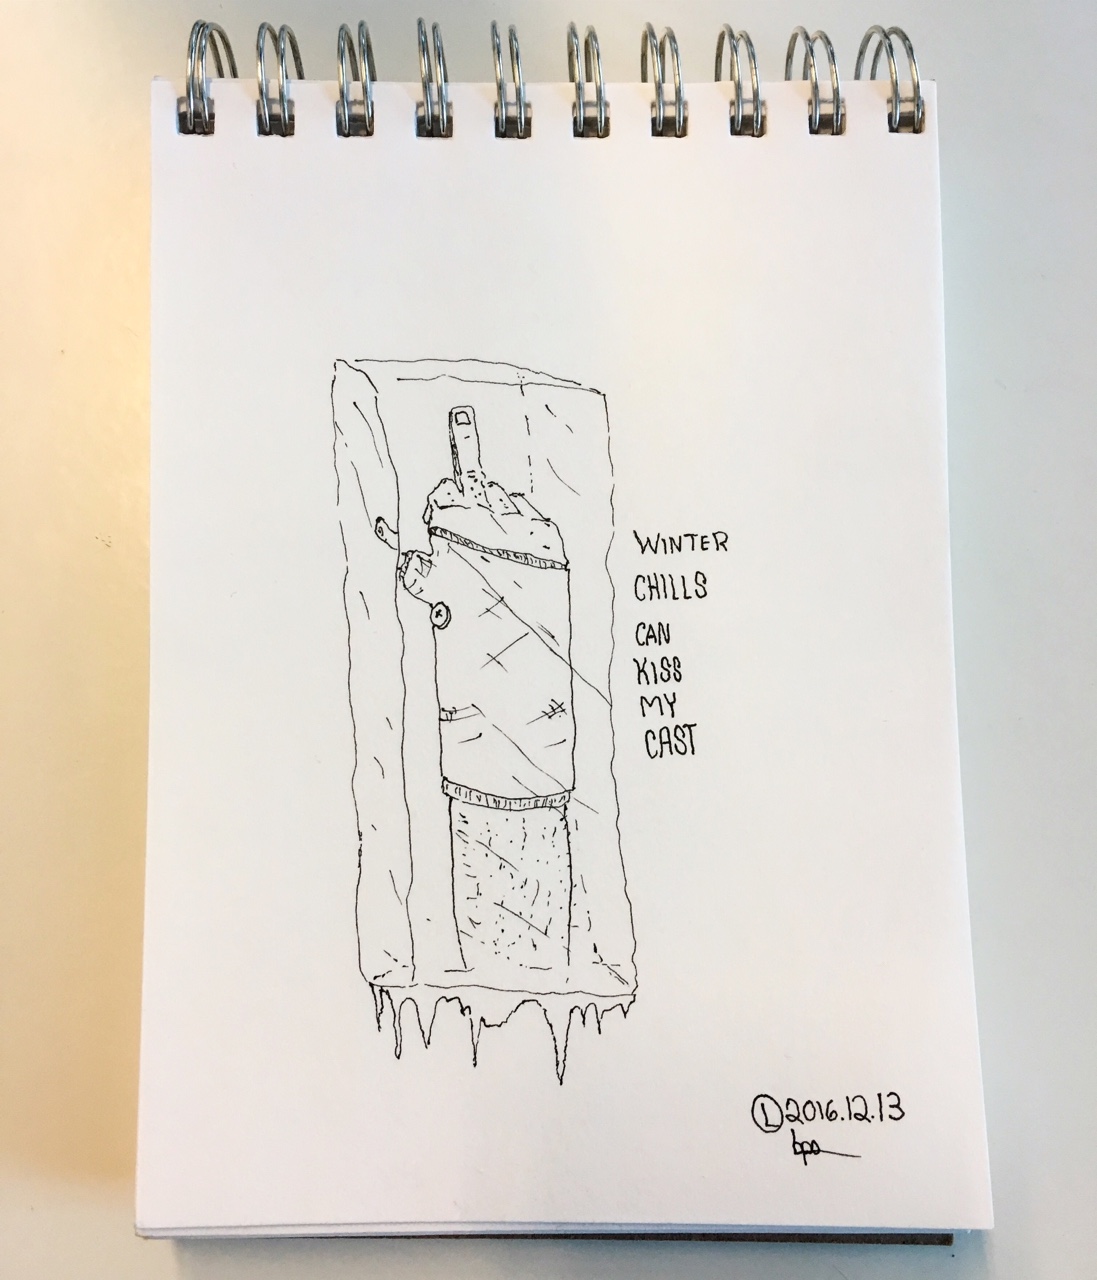 WINTER
CHILLS
CAN
KISS
MY
CAST
Ⓛ2016.12.13